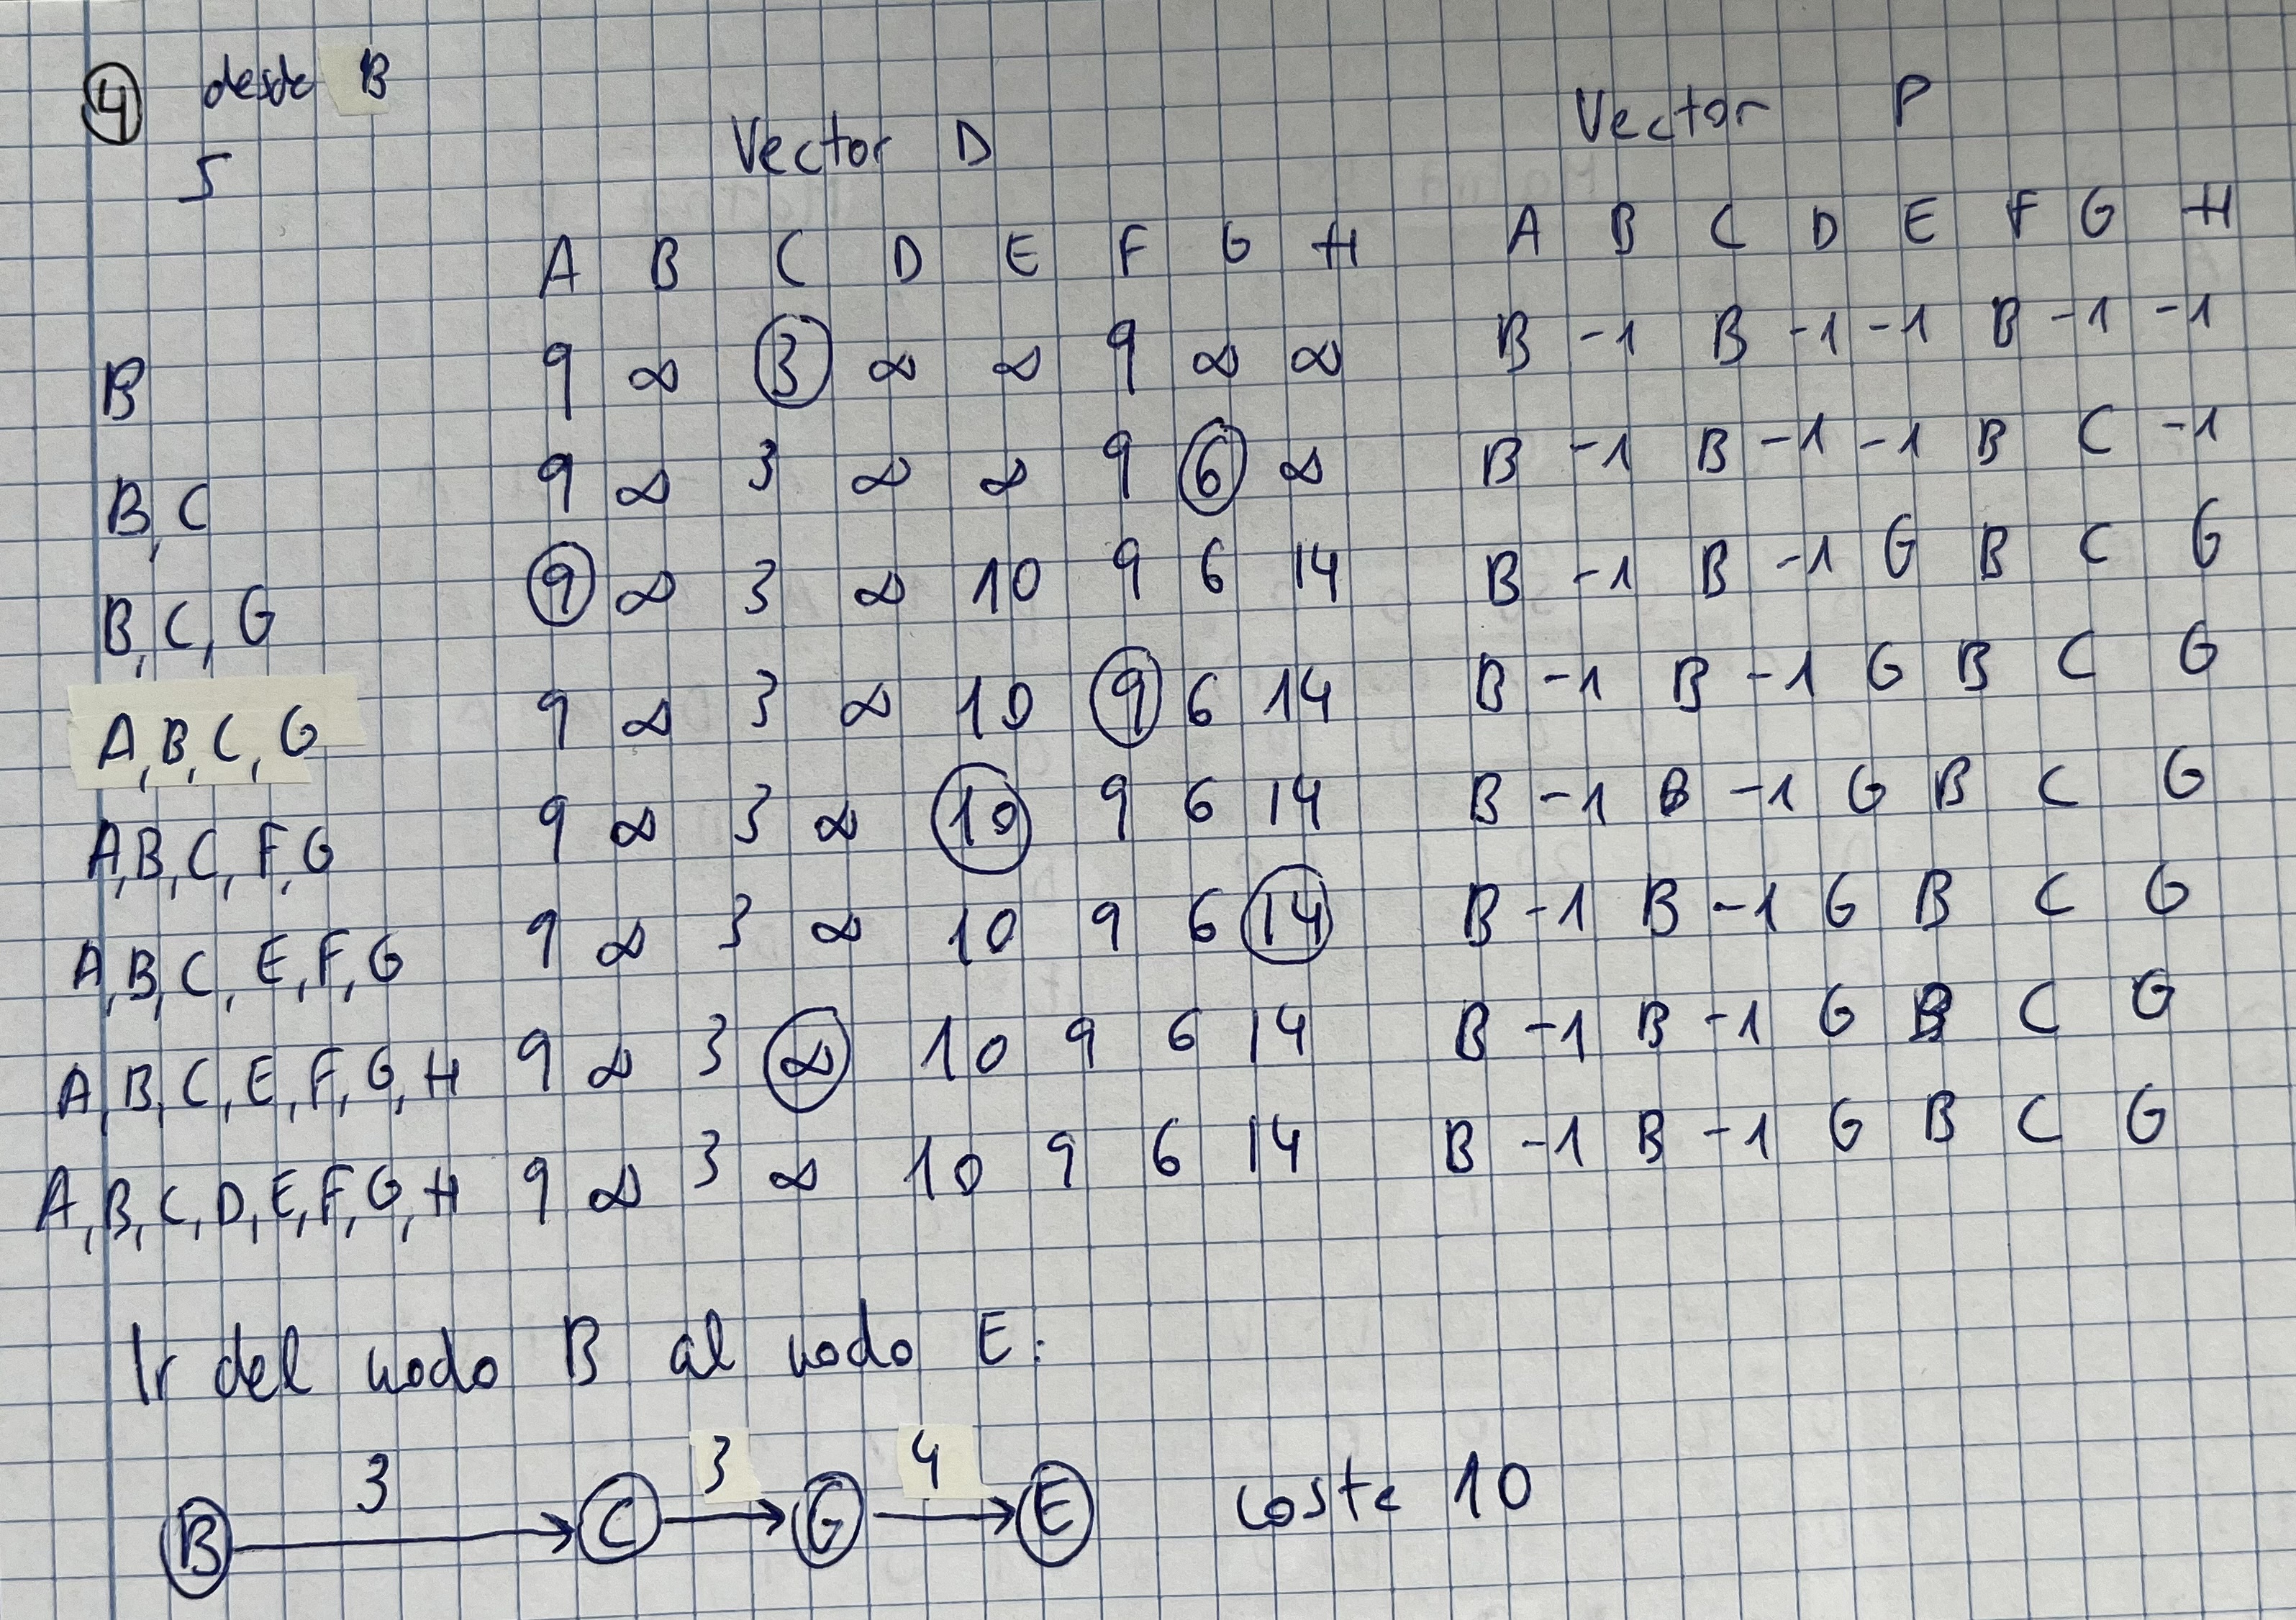 ④ desde B
S Vector D Vector P
A B C D E F G H A B C D E F G H
B 9 ∞ 3 ∞ ∞ 9 ∞ ∞ B -1 B -1 -1 B -1 -1
B, C 9 ∞ 3 ∞ ∞ 9 6 ∞ B -1 B -1 -1 B C -1
B, C, G 9 ∞ 3 ∞ 10 9 6 14 B -1 B -1 G B C G
A, B, C, G 9 ∞ 3 ∞ 10 9 6 14 B -1 B -1 G B C G
A, B, C, F, G 9 ∞ 3 ∞ 10 9 6 14 B -1 B -1 G B C G
A, B, C, E, F, G 9 ∞ 3 ∞ 10 9 6 14 B -1 B -1 G B C G
A, B, C, E, F, G, H 9 ∞ 3 ∞ 10 9 6 14 B -1 B -1 G B C G
A, B, C, D, E, F, G, H 9 ∞ 3 ∞ 10 9 6 14 B -1 B -1 G B C G
Ir del nodo B al nodo E:
3 3 4
B C G E coste 10